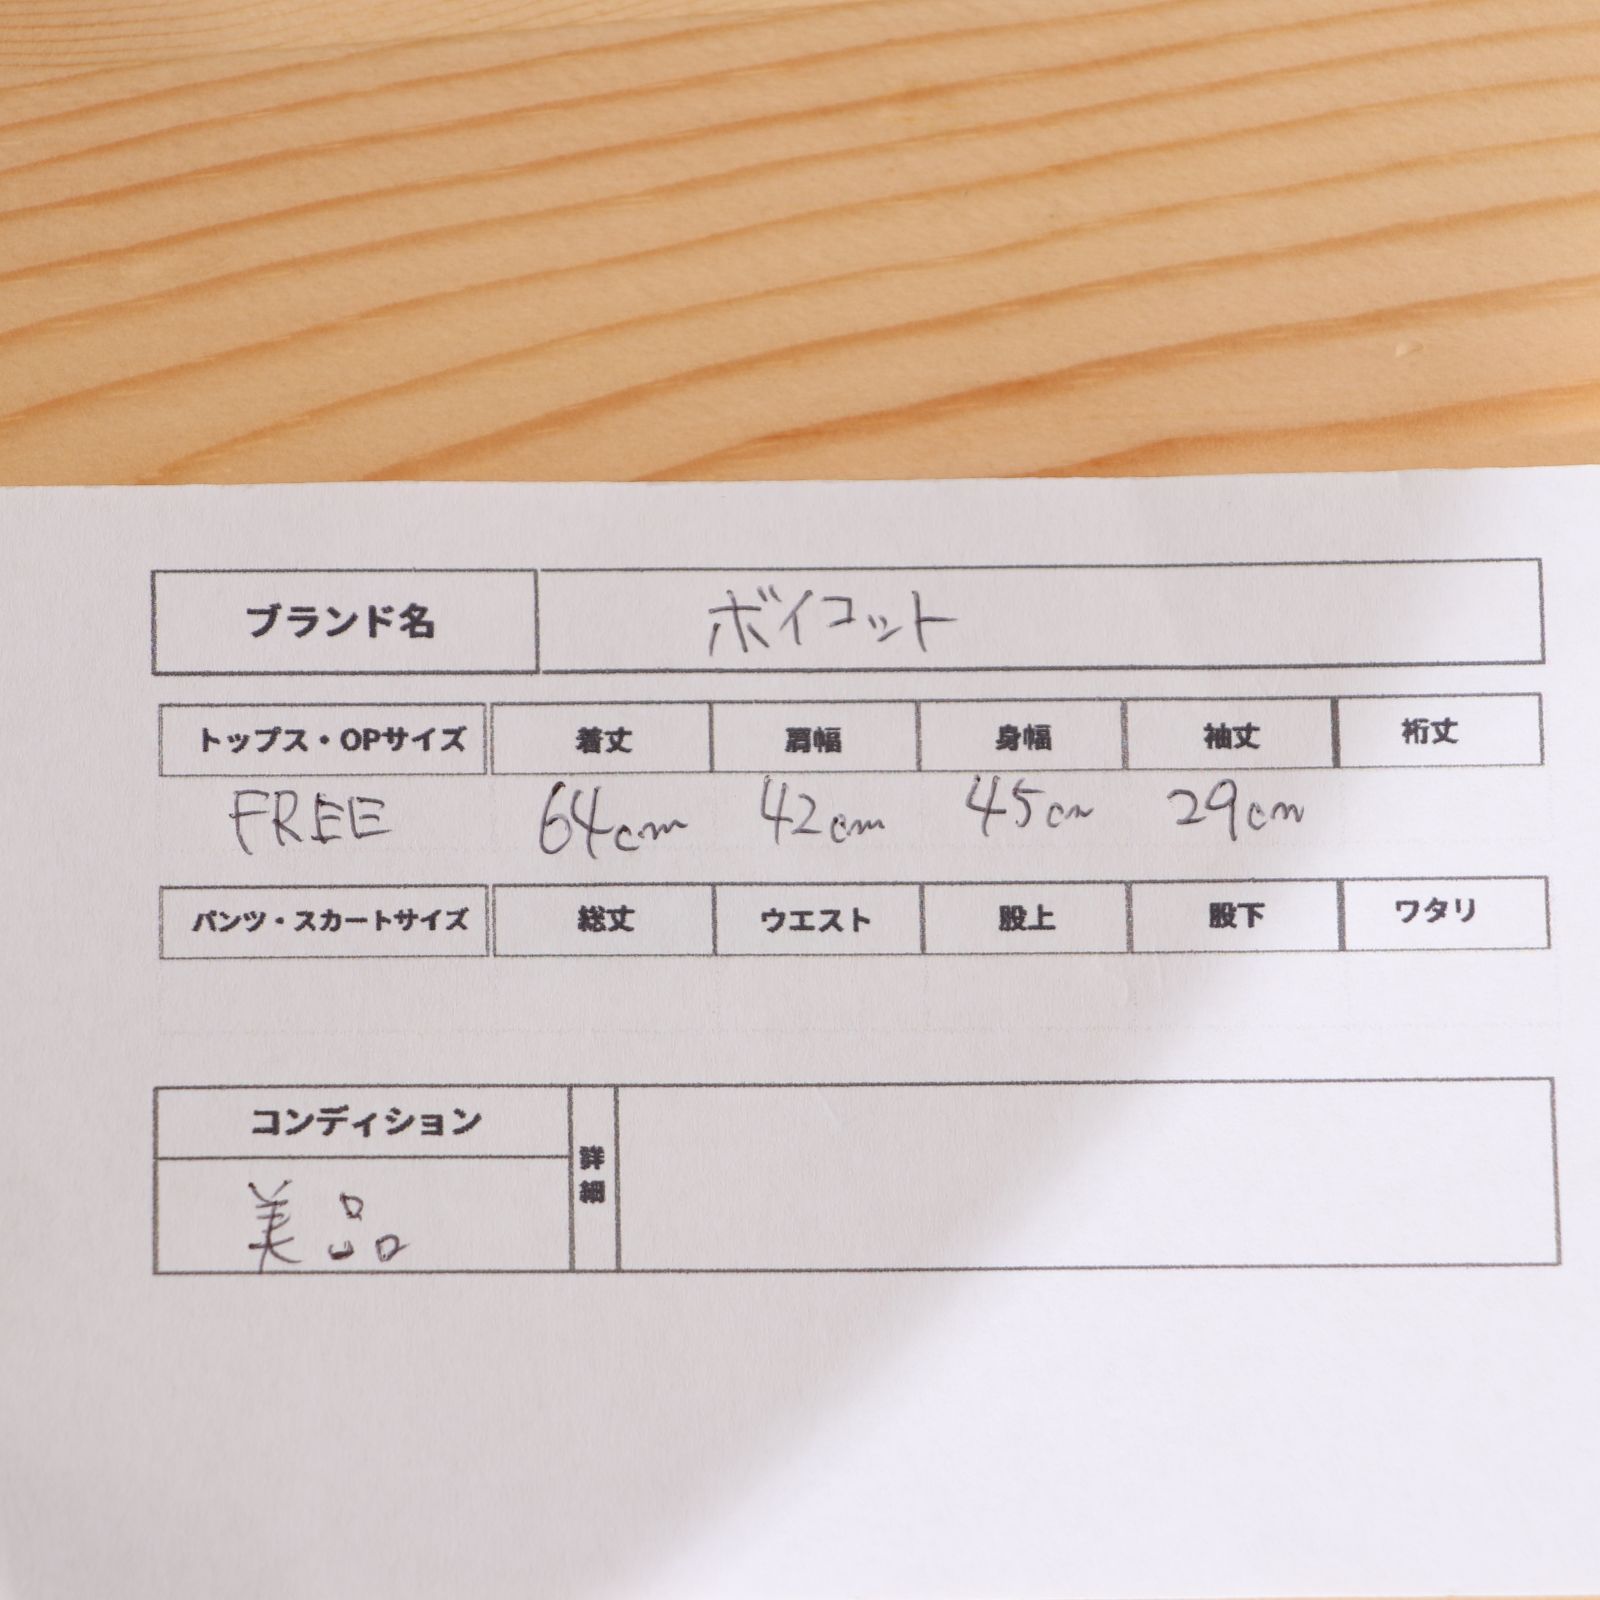 ブランド名 ボイコット
トップス・OPサイズ 着丈 肩幅 身幅 袖丈 裄丈
FREE 64cm 42cm 45cm 29cm
パンツ・スカートサイズ 総丈 ウエスト 股上 股下 ワタリ
コンディション 詳細
美品